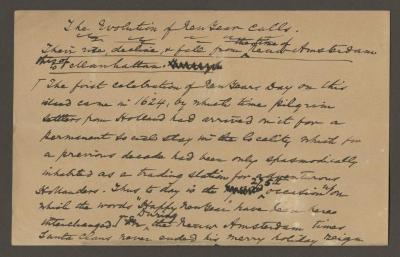 The Evolution of New Year Calls.
Their rise, decline, & fall from the time of New Amsterdam
to Manhattan.
The first celebration of New Years Day on this
island came in 1624, by which time pilgrim
settlers from Holland had arrived in it for a
permanent social stay in the locality which for
a previous decade had been only spasmodically
inhabited as a trading station for adventurous
Hollanders. Thus to day is the occasion on
which the words "Happy New Year" have been here
interchanged. During the New Amsterdam times
Santa Claus never ended his merry holiday reign